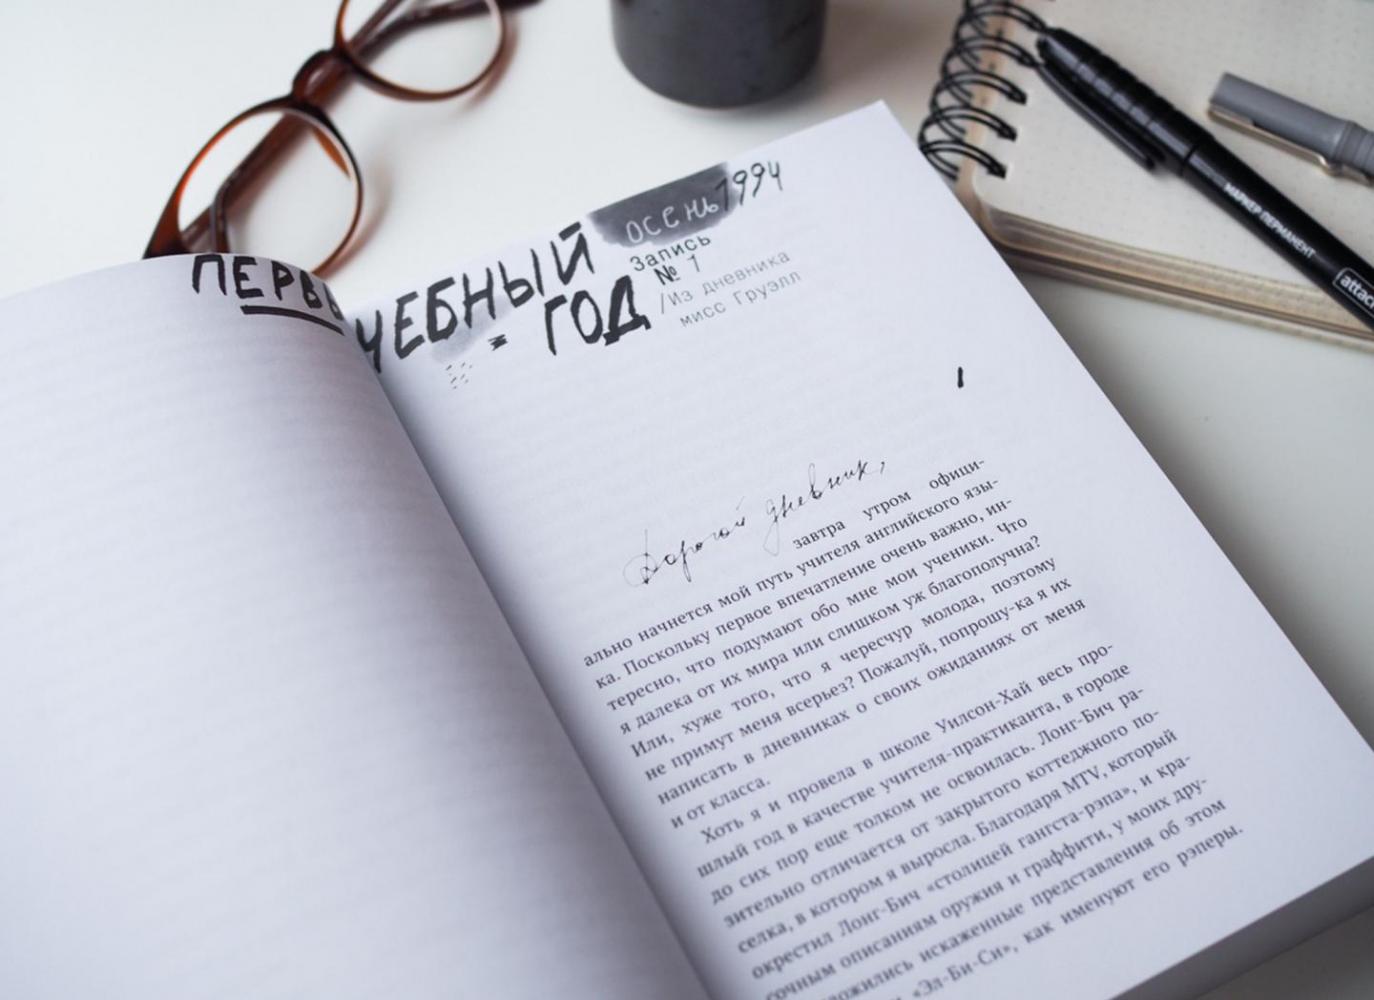 ПЕРВЫ
УЧЕБНЫЙ
ГОД
осень 1994
Запись
№ 1
/Из дневника
мисс Груэлл
Дорогой дневник,
завтра утром офици-
ально начнется мой путь учителя английского язы-
ка. Поскольку первое впечатление очень важно, ин-
тересно, что подумают обо мне мои ученики. Что
я далека от их мира или слишком уж благополучна?
Или, хуже того, что я чересчур молода, поэтому
не примут меня всерьез? Пожалуй, попрошу-ка я их
написать в дневниках о своих ожиданиях от меня
и от класса.
Хоть я и провела в школе Уилсон-Хай весь про-
шлый год в качестве учителя-практиканта, в городе
до сих пор еще толком не освоилась. Лонг-Бич ра-
зительно отличается от закрытого коттеджного по-
селка, в котором я выросла. Благодаря MTV, который
окрестил Лонг-Бич «столицей гангста-рэпа», и кра-
сочным описаниям оружия и граффити, у моих дру-
сложились искаженные представления об этом
«Эл-Би-Си», как именуют его рэперы.
МАРКЕР ПЕРМАНЕНТ
attac